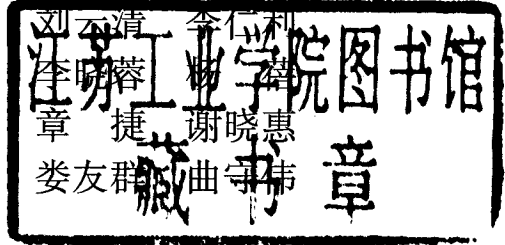 刘云清 李仁利
李晓蓉 杨蓓
章捷 谢晓惠
娄友群 曲守伟
江苏工业学院图书馆
藏书章